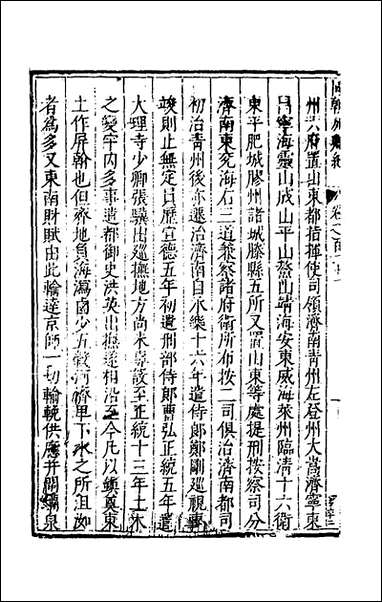 州六府置山東都指揮使司領濟南青州左登州大嵩濟寧東
昌寧海靈山成山平山鰲山靖海安東威海萊州臨清十六衛
東平肥城膠州諸城滕縣五所又置山東等處提刑按察司分
濟南東兗海右三道兼察諸府衛所布按二司俱治濟南都司
初治青州後亦遷治濟南自永樂十六年遣侍郎鄭剛巡視事
竣則止無定日歷宣德五年初遣刑部侍郎曹弘正統五年遣
大理寺少卿張驥出巡撫地方尚未專敕至正統十三年土木
之變宇內多事遣都御史洪英出撫遂相沿至今凡以鎮奠東
土作屏翰也但齊地負海瀉鹵少五穀河濟里下水之所沮洳
者為多又東南財賦由此輸達京師一切輸輓供應并開濬泉